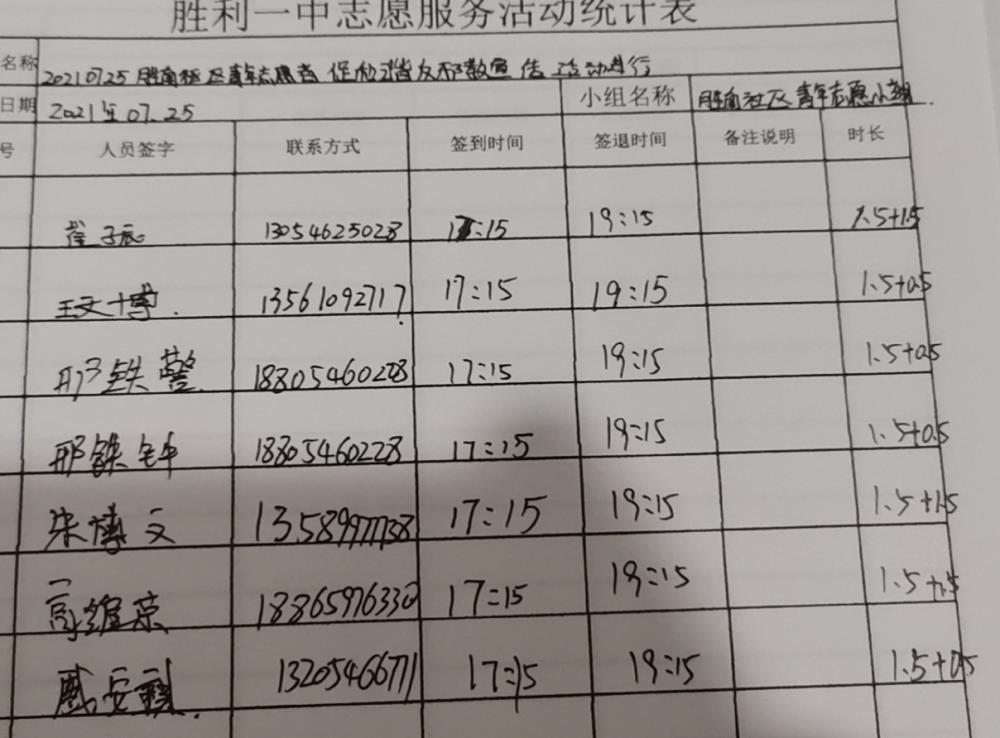 胜利一中志愿服务活动统计表
名称 20210725 胜南社区青年志愿者 促和谐反邪教宣传活动进行
日期 2021年07.25 小组名称 胜南社区青年志愿小组
号 人员签字 联系方式 签到时间 签退时间 备注说明 时长
崔子辰 13054625028 17:15 19:15 1.5+1.5
王文博 13561092717 17:15 19:15 1.5+0.5
邢铁警 18805460228 17:15 19:15 1.5+0.5
邢铁钟 18805460228 17:15 19:15 1.5+0.5
朱博文 17:15 19:15 1.5+1.5
高维荣 18865976330 17:15 19:15 1.5+1.5
戚安 13205466771 17:15 19:15 1.5+0.5